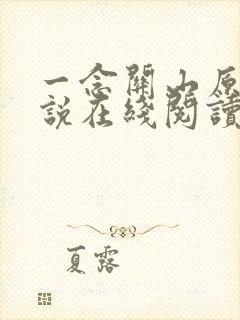 一念關山原
說在綫閱讀
夏露